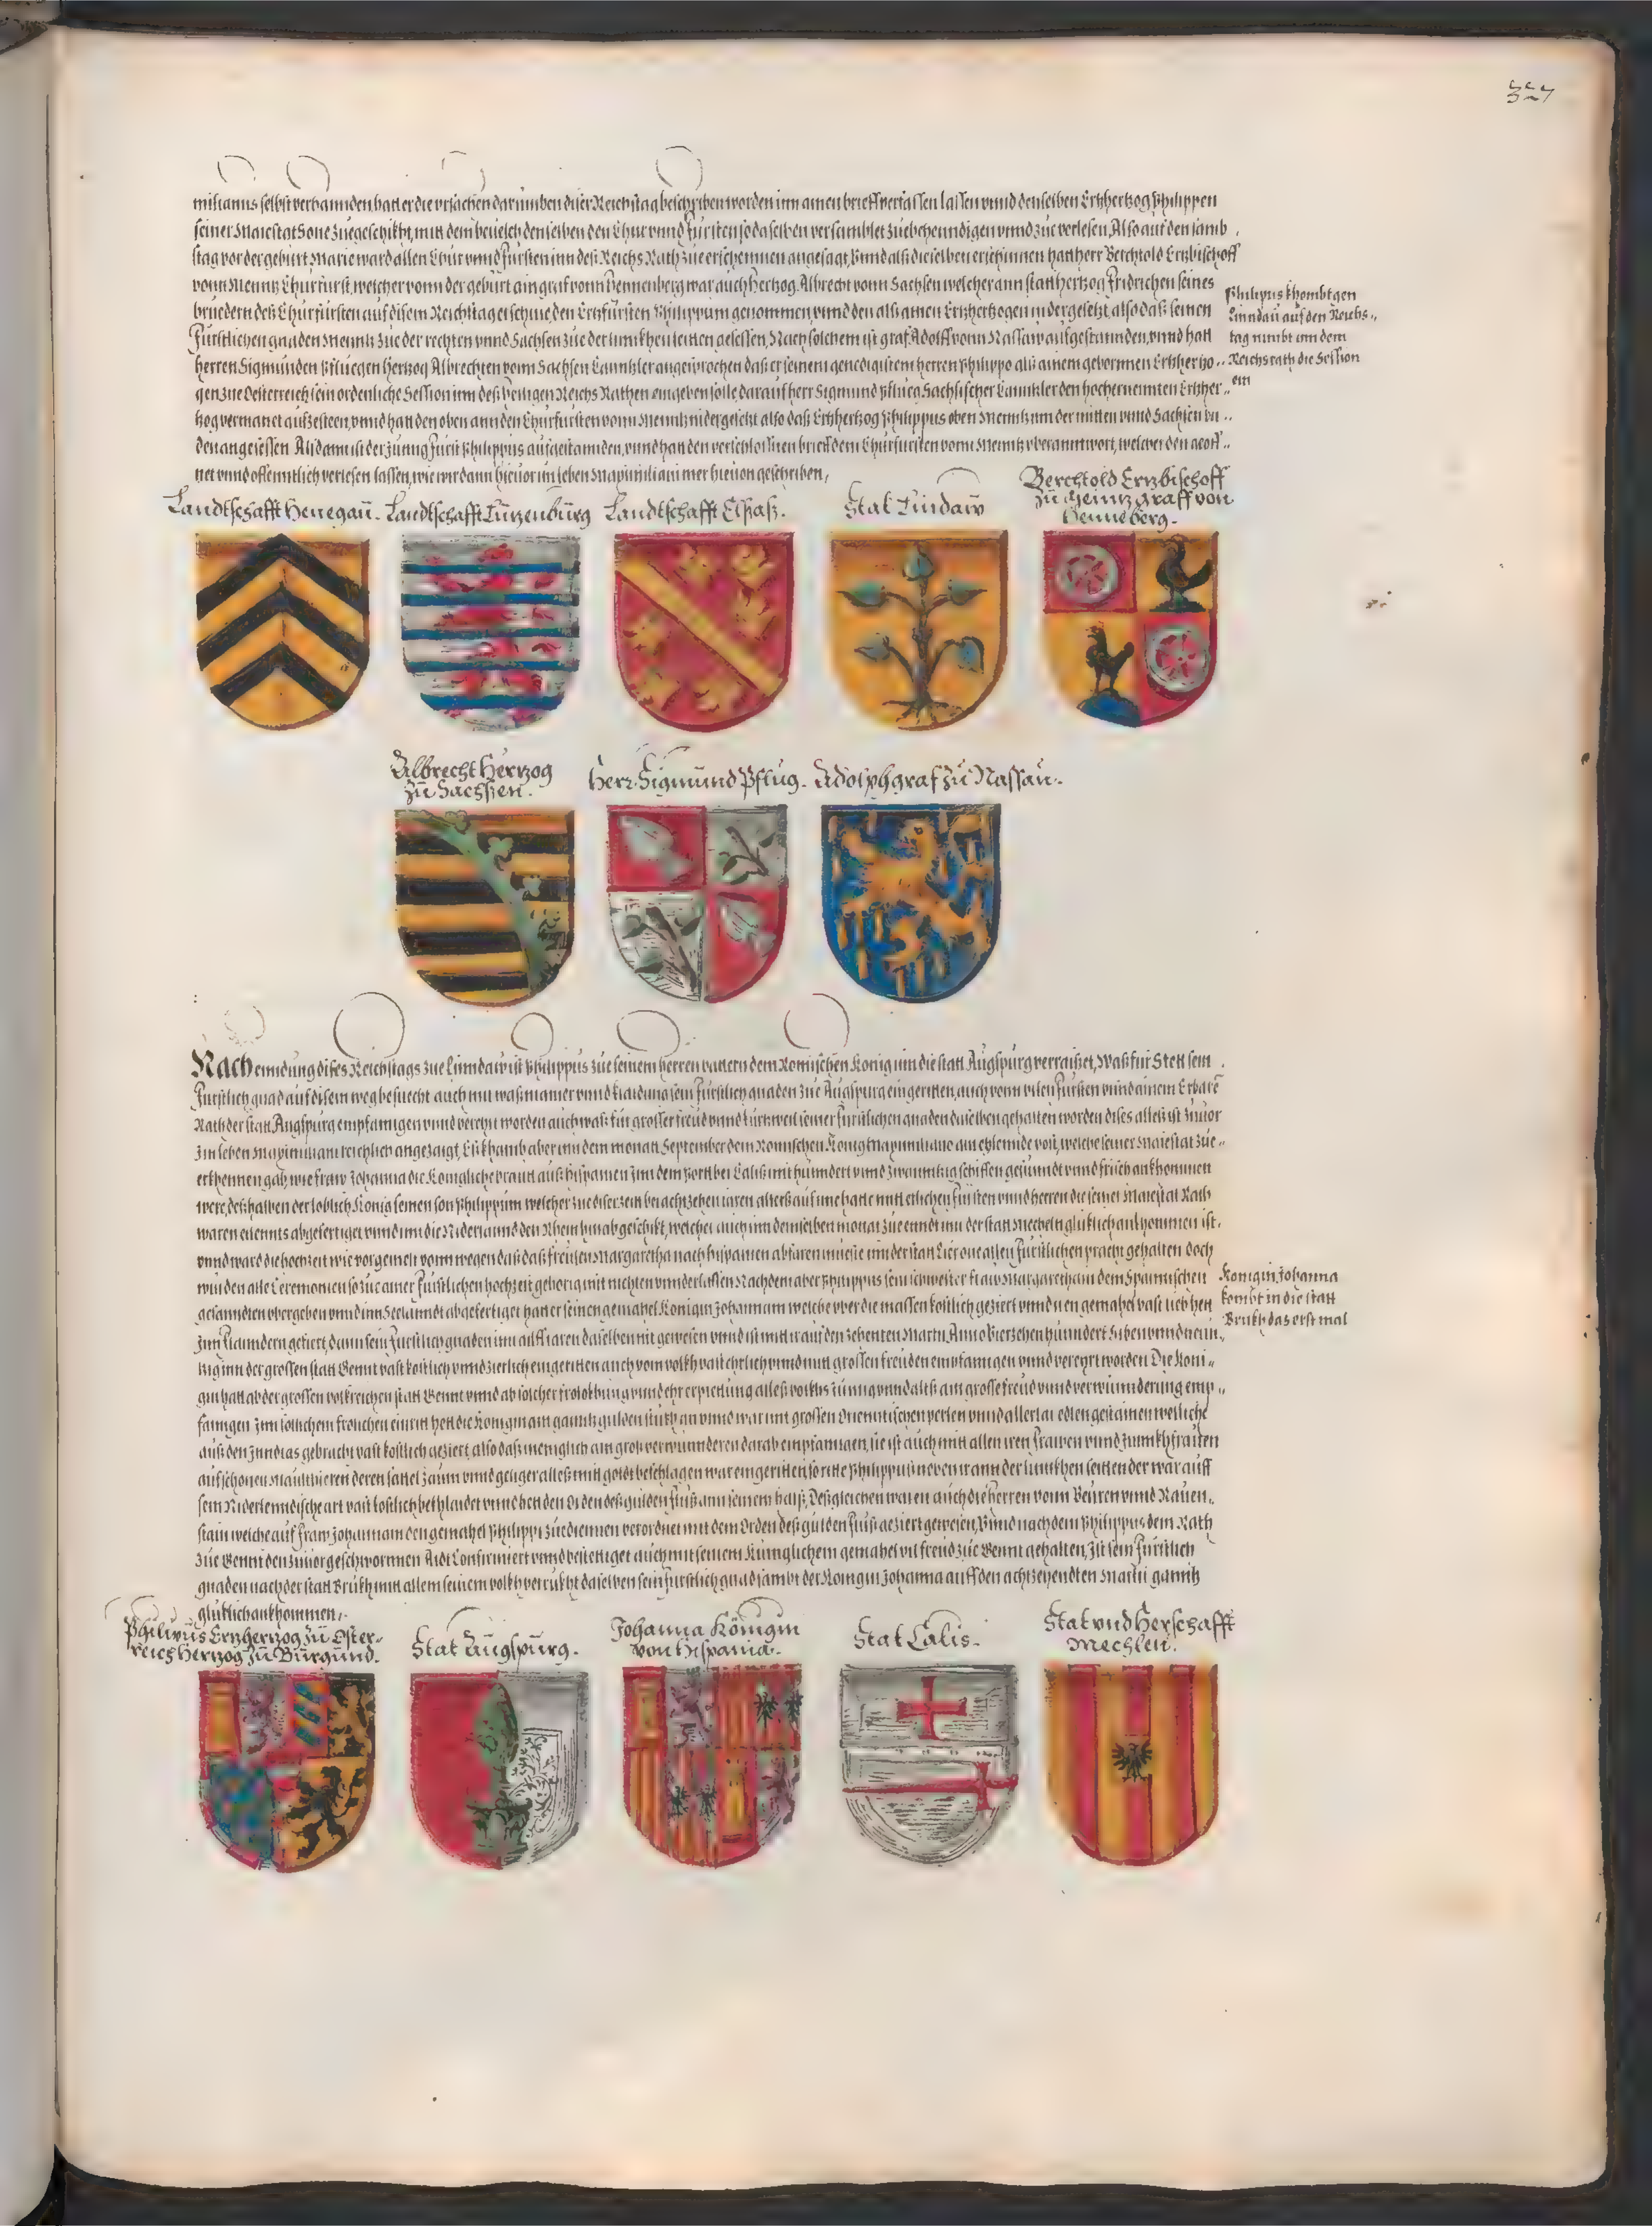 327
milianus selbst verhannden hat er die vrsachen darumben diser Reichstag beschriben worden inn ainen brieff verfassen lassen vnnd denselben Ertzhertzog Philippen
seiner Maiestat Sone zuegeschikht, mit dem beuelch denselben den Chur vnnd Fürsten so daselben versamblet zuebekhenndigen vnnd zuuerlesen, Also auf den samb
stag vor der geburt Marie ward allen Chur vnnd Fürsten inn deß Reichs Rath zue erscheinnen angesagt, Vnnd alß dieselben erschinnen hat herr Berchtold Ertzbischoff
vonn Menntz Churfürst, welcher vonn der geburt ain graf vonn Hennenberg war auch Hertzog Albrecht vonn Sachsen welcher ann statt hertzog Fridrichen seines
bruedern deß Churfürsten auf disem Reichstag erschine den Ertzfürsten Philippum genommen, vnnd den alß ainen Ertzhertzogen nidergesetzt, also daß seinen
Fürstlichen gnaden Menntz zue der rechten vnnd Sachsen zue der linnkhen seitten gesessen, Nach solchem ist graf Adolff vonn Nassaw aufgestannden, vnnd hatt
herren Sigmunden Pfluegen Hertzog Albrechten vonn Sachsen Canntzler angesprochen daß er seinem genedigistem herren Philippo alß ainem gebornnen Ertzhertzo..
gen zue Oesterreich sein ordenliche Session inn deß heiligen Reichs Rathen eingeben solle, darauf herr Sigmund Pflueg Sachsischer Canntzler den hochernennten Ertzher..
tzog vermanet aufzesteen, vnnd hatt den oben ann den Churfürsten vonn Menntz nidergesetzt also daß Ertzhertzog Philippus oben Menntz inn der mitten vnnd Sachsen vn..
den angesessen Alsdann ist der Junng Fürst Philippus aufgestannden, vnnd hat den verschlossnen brieff dem Churfürsten vonn Menntz vberanntwort, welcher den geöff..
net vnnd offenntlich verlesen lassen, wie wir dann hieuor im leben Maximiliani mer hieuon geschriben,
Philipus khombt gen
Linndau auf den Reichs..
tag nimbt inn dem
Reichsrath die Session
ein
Landtschafft Henegaü.
Landtschafft Lützenbürg
Landtschafft Elsaß.
Stat Lindaw
Berchtold Ertzbischoff
zü Meintz graff von
Henneberg.
Albrecht Hertzog
zü Sachsen.
Herr Sigmünd Pflüg.
Adolph graf zü Nassaü.
Nach enndung dises Reichstags zue Linndaw ist Philippus zue seinem herren vattern dem Romischen Konig inn die statt Augspurg verraiset, Waß für Stett sein
Fürstlich gnad auf disem weg besuecht auch mit waß manier vnnd klaidung sein Fürstlich gnaden zue Augspurg eingeritten, auch vonn vilen Fürsten vnnd ainem Erbarn
Rath der statt Augspurg empfanngen vnnd vereret worden auch waß für grosser freud vnnd kurtzweil seiner fürstlichen gnaden daselben gehalten worden dises alles ist zuuor
Im leben Maximiliani reichlich angezaigt, Eß khamb aber inn dem monatt September dem Romischen Konig Maximiliano ain eylennde post, welche seiner Maiestat zue..
erkhennen gab, wie fraw Johanna die Konigliche braut auß Hispanien Inn dem Port bey Caliß mit hundert vnnd zwainntzig schiffen gesundt vnnd frisch ankhommen
were, deßhalben der loblich Konig seinen son Philippum welcher zue diser zeit bei achtzehen iaren alters auf ime hatte mit etlichen fürsten vnnd herren die seiner Maiestat Rath
waren eilennts abgefertiget vnnd inn die Niderlannd den Rhein hinab geschikt, welcher auch inn demselben monat zue ennd inn der statt Mecheln glüklich ankhommen ist,
vnnd ward die hochzeit wie vorgemelt vonn wegen daß das freulen Margaretha nach Hispanien abfaren mueste inn der statt Lier one allen Fürstlichen pracht gehalten doch
wurden alle Ceremonien so zue ainer Fürstlichen hochzeit gehorig mit nichten vnnderlassen Nachdem aber Philippus sein schwester fraw Margaretham dem Spannischen
gesanndten vbergeben vnnd inn Seelanndt abgefertiget hatt er seinen gemahel Konigin Johannam welche vber die massen kostlich geziert vnnd iren gemahel vast lieb hett
Inn Flanndern gefiert, dann sein Fürstlich gnaden inn ailff iaren daselben nit gewesen vnnd ist mit ir auf den zehenten Martii, Anno Vierzehen hunndert Siben vnnd neun..
tzig inn der grossen statt Gennt vast kostlich vnnd zierlich eingeritten auch vom volkh vast ehrlich vnnd mit grossen freuden empfanngen vnnd vereyrt worden Die Koni..
gin hatt ab der grossen volkreichen statt Gennt vnnd ab solcher frolokhung vnnd ehrerpiettung alles volkhs Junng vnnd altß ain grosse freud vnnd verwunnderung emp..
fanngen Inn sollichem frolichen einritt hett die Konigin ain ganntz gulden stukh an vnnd war mit grossen Orienntischen perlen vnnd allerlai edlen gestainen welliche
auß den Inndias gebracht vast kostlich geziert, also daß meniglich ain groß verwunnderen darab empfanngen, sie ist auch mit allen iren frawen vnnd Junnkhfrawen
auf schonen Maulthieren deren sattel zaum vnnd geliger alleß mit goldt beschlagen war eingeritten, so ritte Philippus neben ir ann der linnkhen seitten der war auff
sein Niderlenndische art vast kostlich bekhlaidet vnnd hett den Orden deß gulden Fluß ann seinem halß, Deßgleichen waren auch die Herren vonn Beuren vnnd Rauen..
stain welche auf fraw Johannam den gemahel Philippi zue diennen verordnet mit dem Orden deß gulden Fluß geziert gewesen, Vnnd nach dem Philippus dem Rath
zue Gennt den zuuor geschwornnen Aidt Confirmiert vnnd bestettiget auch mit seinem Küniglichem gemahel vil freud zue Gennt gehalten, Ist sein Fürstlich
gnaden nach der statt Brukh mit allem seinem volkh verrukht daselben sein Fürstlich gnad sambt der Konigin Johanna auff den achtzehendten Martii ganntz
glüklich ankhommen,
Konigin Johanna
kombt in die statt
Brukh das erst mal
Philipüs Ertzhertzog zü Öster..
reich Hertzog zü Bürgünd.
Stat Aügspürg.
Johanna Königin
von Hispania.
Stat Calis.
Stat vnd Herschafft
Mechlen.